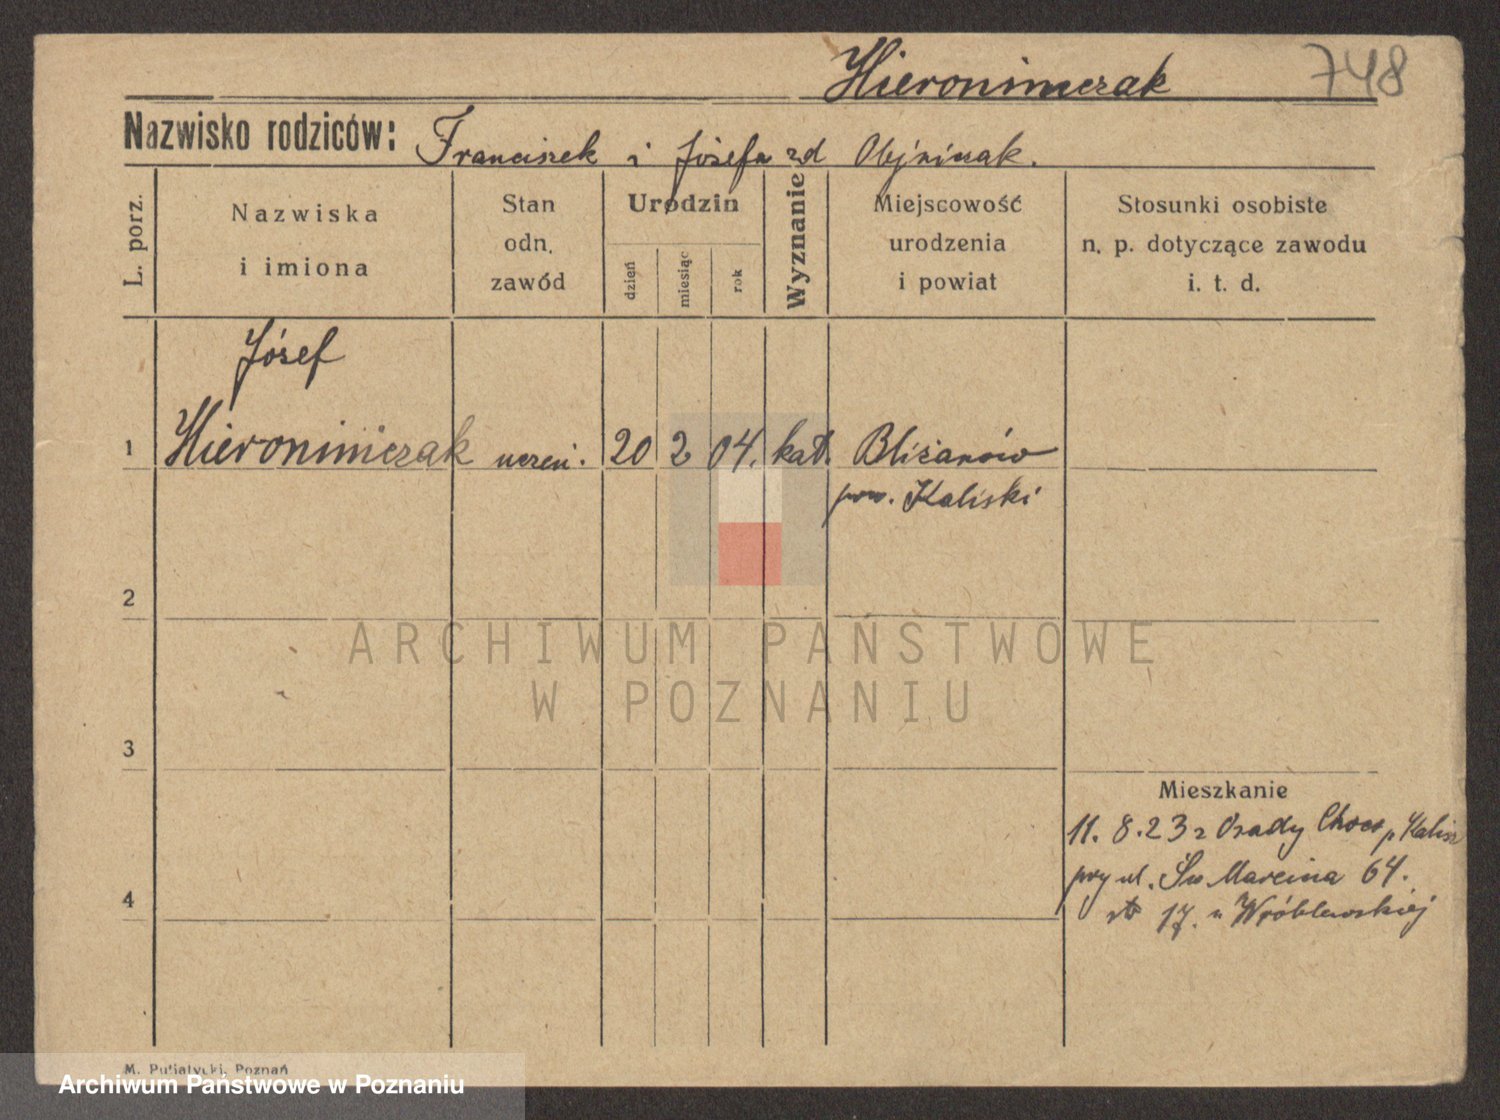 Hieronimczak 748
Nazwisko rodziców: Franciszek i Józefa zd Olejniczak.
L. porz.
Nazwiska
i imiona
Stan
odn.
zawód
Urodzin
dzień
miesiąc
rok
Wyznanie
Miejscowość
urodzenia
i powiat
Stosunki osobiste
n. p. dotyczące zawodu
i. t. d.
Józef
1 Hieronimczak uczeń. 20 2 04. kat. Bliżanów
pow. Kaliski
2
3
4
Mieszkanie
11. 8. 23 z Osady Chocz p. Kalisz
przy ul. Św. Marcina 64.
17. u Wróblewskiej
M. Putiatycki, Poznań
ARCHIWUM PAŃSTWOWE
W POZNANIU
Archiwum Państwowe w Poznaniu